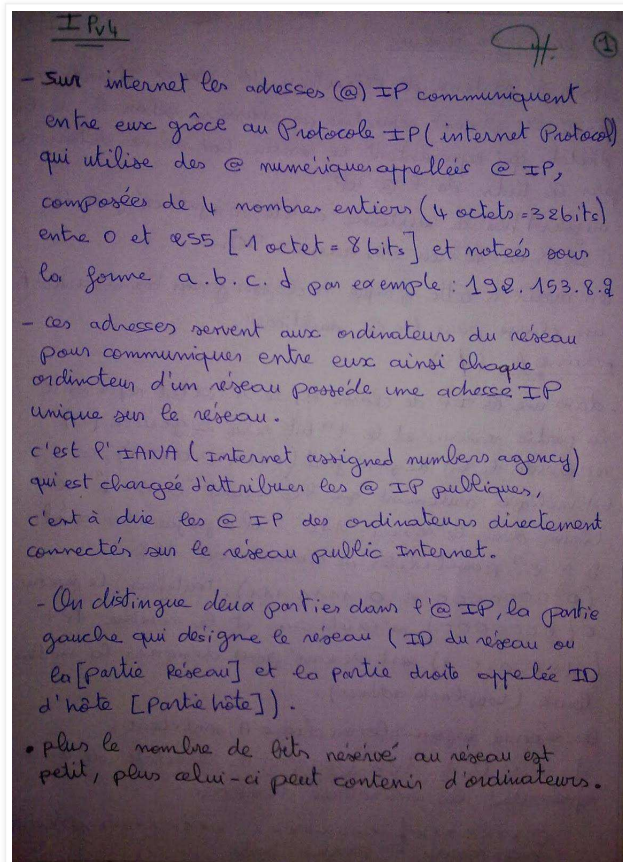 IPv4
1
- Sur internet les adresses (@) IP communiquent
entre eux grâce au Protocole IP (internet Protocol)
qui utilise des @ numériques appellées @ IP,
composées de 4 nombres entiers (4 octets = 32bits)
entre 0 et 255 [1 octet = 8 bits] et notées sous
la forme a.b.c.d par exemple : 192.153.8.2
- ces adresses servent aux ordinateurs du réseau
pour communiquer entre eux ainsi chaque
ordinateur d'un réseau posséde une adresse IP
unique sur le réseau.
c'est l'IANA (Internet assigned numbers agency)
qui est chargée d'attribuer les @ IP publiques,
c'est à dire les @ IP des ordinateurs directement
connectés sur le réseau public Internet.
- On distingue deux parties dans l'@ IP, la partie
gauche qui désigne le réseau (ID du réseau ou
la [partie Réseau] et la partie droite appelée ID
d'hôte [Partie hôte]).
• plus le nombre de bits réservé au réseau est
petit, plus celui-ci peut contenir d'ordinateurs.